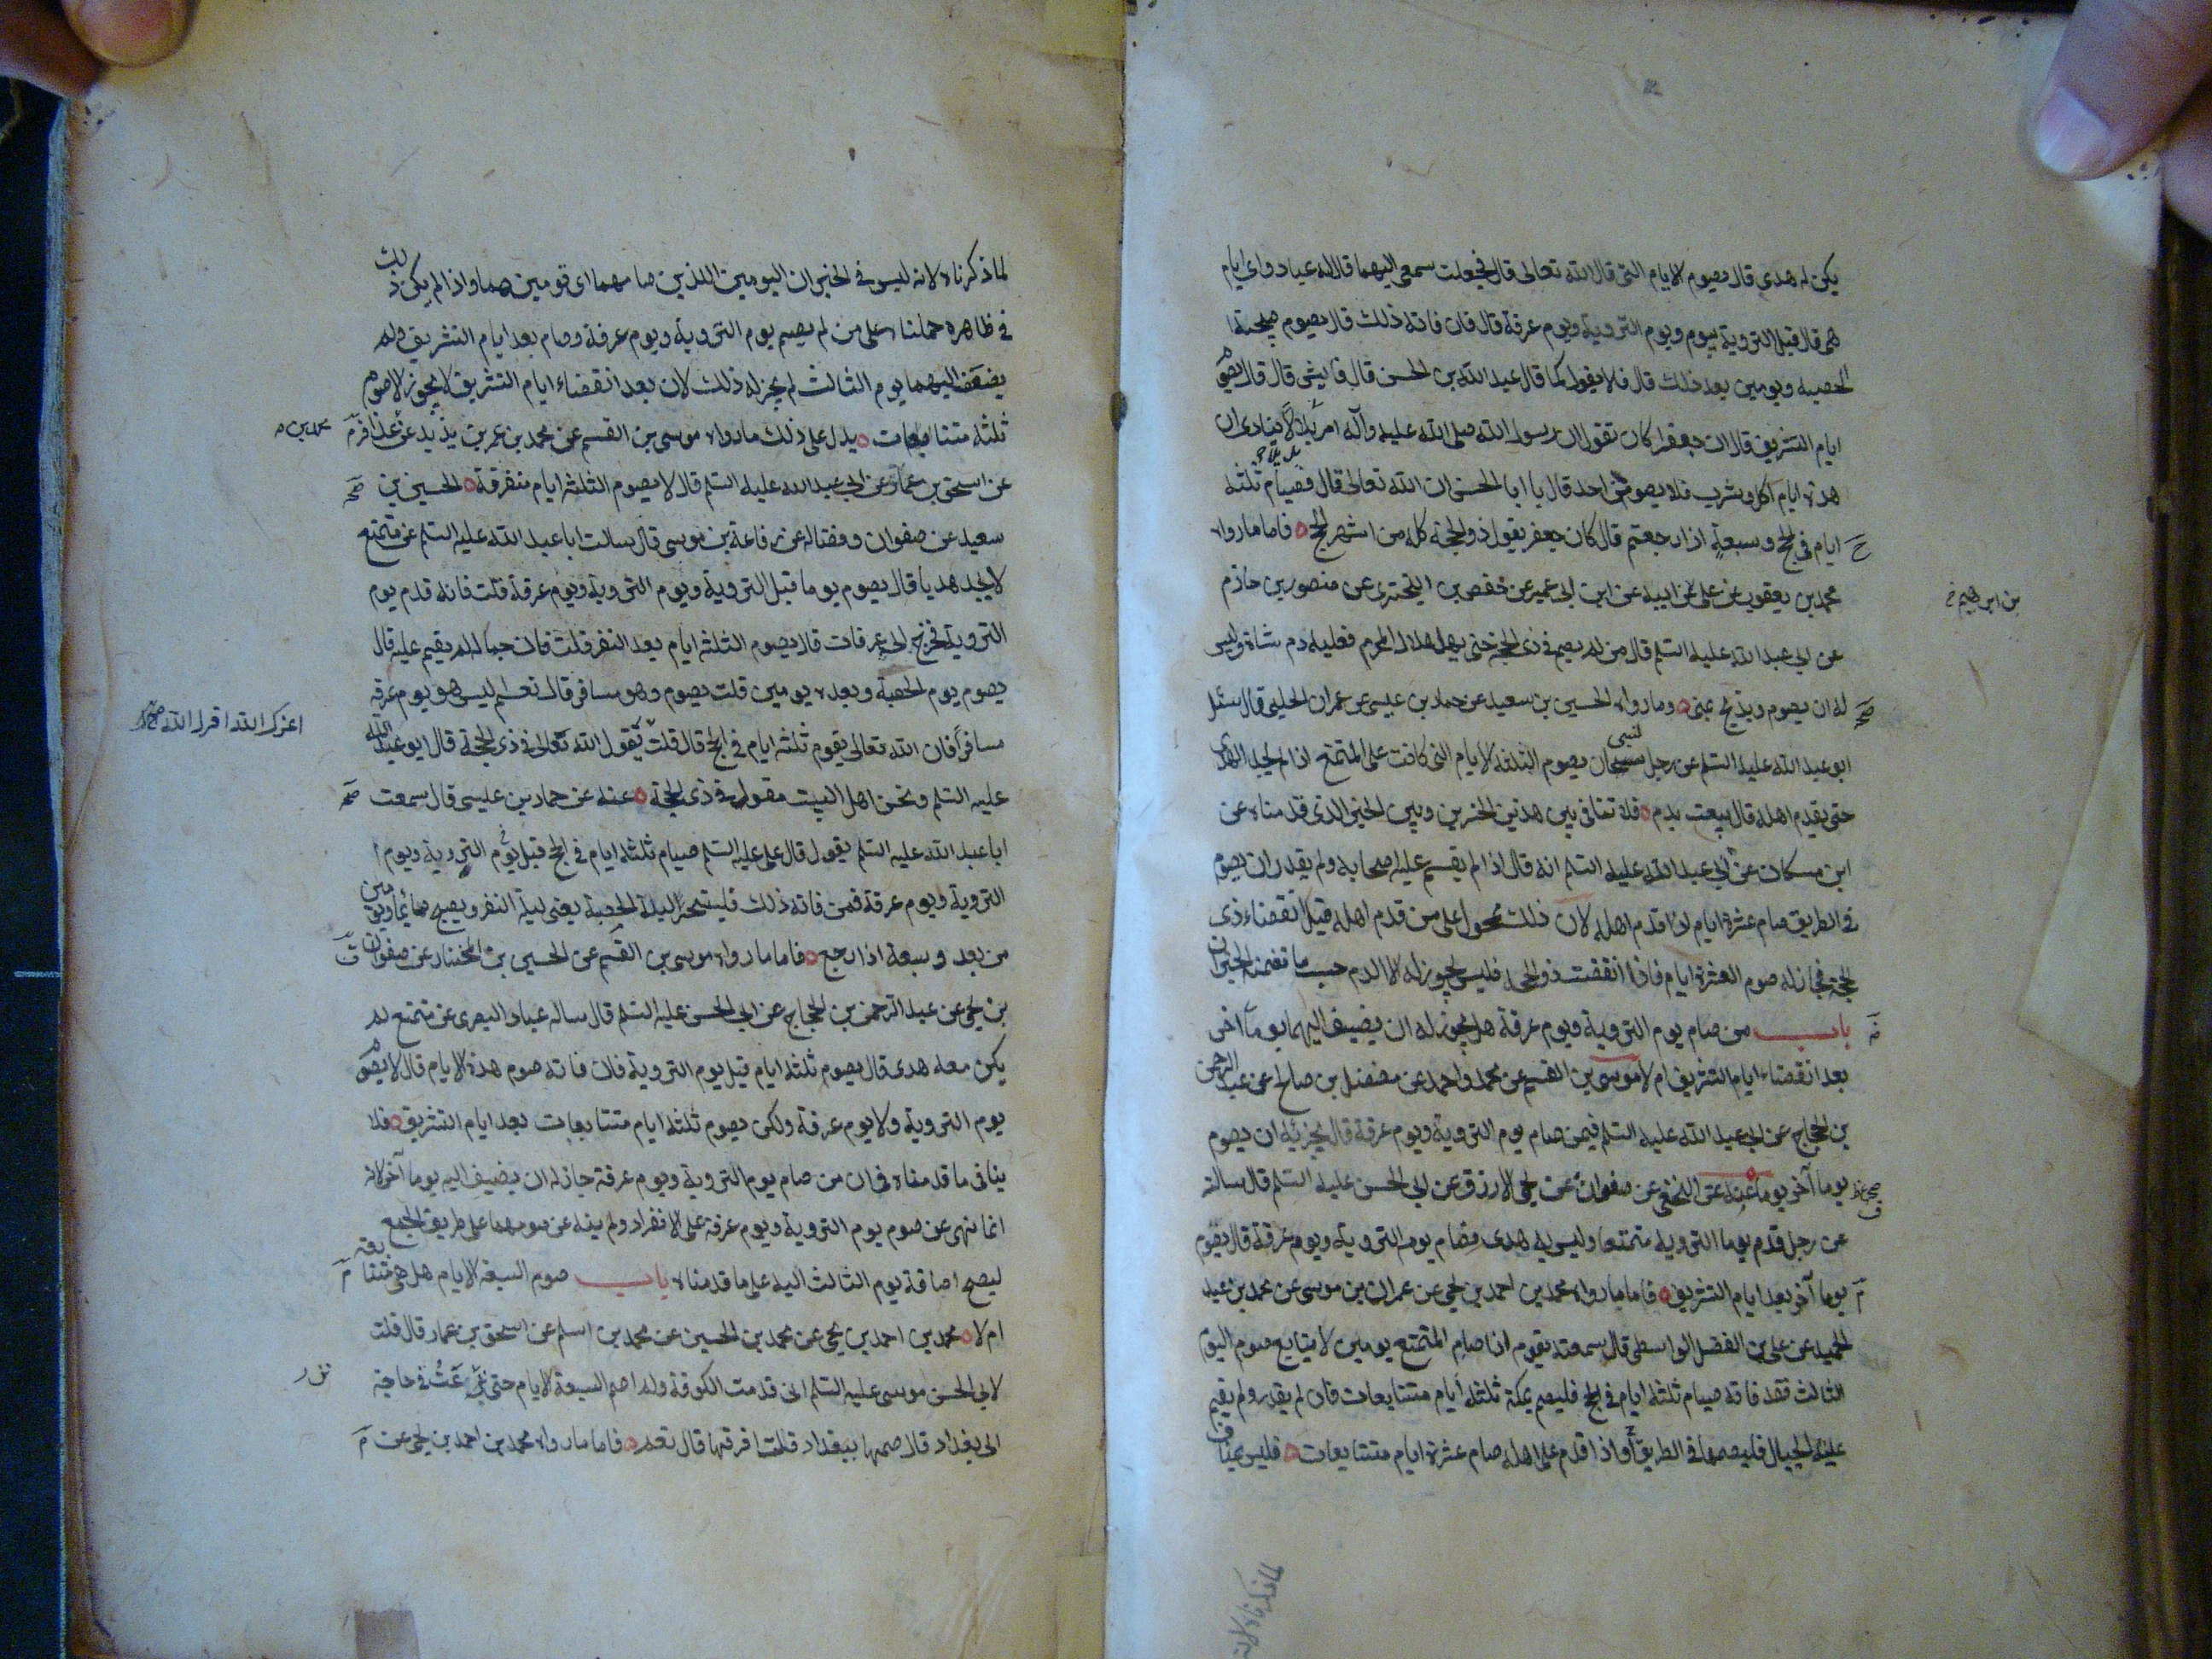 يكن له هدى قال يصوم الايام التى قال الله تعالى قال فجعلت سمعى اليهما قال له عباد واى ايام
هى قال قبل التروية بيوم ويوم التروية ويوم عرفة قال فان فاته ذلك قال يصوم صبيحة
الحصبه ويومين بعد ذلك قال فلا يقول كما قال عبد الله بن الحسن قال فايش قال قال يصوم
ايام التشريق قال ان جعفرا كان تقول ان رسول الله صلى الله عليه وآله امر بلالا ينادى ان
بديلا
هذه ايام اكل وشرب فلا يصومن احد قال يا ابا الحسن ان الله تعالى قال فصيام ثلثة
ايام فى الحج وسبعة اذا رجعتم قال كان جعفر يقول ذو الحجة كله من اشهر الحج فاما ما رواه
محمد بن يعقوب عن على عن ابيه عن ابن ابى عمير عن حفص بن البخترى عن منصور بن حازم
بن ابرهيم
عن ابى عبد الله عليه السلم قال من لم يصم فى ذى الحجة حتى يهل هلال المحرم فعليه دم شاة وليس
له ان يصوم ويذبح بمنى وما رواه الحسين بن سعيد عن حماد بن عيسى عن عمران الحلبى قال سئل
ابو عبد الله عليه السلم عن رجل نسى ان يصوم الثلثة الايام التى كانت على المتمتع اذا لم يجد الهدى
حتى يقدم اهله قال يبعث بدم فلا تنافى بين هذين الخبرين وبين الخبر الذى قدمناه عن
ابن مسكان عن ابى عبد الله عليه السلم انه قال اذا لم يقم عليه اصحابه ولم يقدر ان يصوم
فى الطريق صام عشرة ايام اذا قدم اهله لان ذلك محمول على من قدم اهله قبل انقضاء ذى
الحجة فجاز له صوم العشرة ايام فاذا انقضت ذو الحجة فليس يجوز له الا الدم حسب ما تضمنه الخبران
باب من صام يوم التروية ويوم عرفة هل يجوز له ان يضيف اليهما يوما آخر
بعد انقضاء ايام التشريق ام لا موسى بن القسم عن محمد واحمد عن مفضل بن صالح عن عبد الرحمن
بن الحجاج عن ابى عبد الله عليه السلم فيمن صام يوم التروية ويوم عرفة قال يجزئه ان يصوم
يوما آخر عنه عن النخعى عن صفوان عن يحى الازرق عن ابى الحسن عليه السلم قال سالته
عن رجل قدم يوم التروية متمتعا وليس له هدى فصام يوم التروية ويوم عرفة قال يصوم
يوما آخر بعد ايام التشريق فاما ما رواه محمد بن احمد بن يحى عن عمران بن موسى عن محمد بن عبد
الحميد عن على بن الفضل الواسطى قال سمعته يقول اذا صام المتمتع يومين لا يتابع صوم اليوم
الثالث فقد فاته صيام ثلثة ايام فى الحج فليصم بمكة ثلثة ايام متتابعات فان لم يقدر ولم يقم
عليه الجمال فليصمها فى الطريق او اذا قدم على اهله صام عشرة ايام متتابعات فليس بمناف
لما ذكرناه لانه ليس فى الخبر ان اليومين اللذين صامهما اى قومين هما واذا لم يكن ذلك
فى ظاهره حملناه على من لم يصم يوم التروية ويوم عرفة وصام بعد ايام التشريق ولم
يضف اليهما يوم الثالث لم يجز له ذلك لان بعد انقضاء ايام التشريق لا يجوز الا صوم
ثلثة متتابعات يدل على ذلك ما رواه موسى بن القسم عن محمد بن عمر بن يزيد عن عذافر
محمد بن
عن اسحق بن عمار عن ابى عبد الله عليه السلم قال لا يصوم الثلثة ايام متفرقة الحسين بن
سعيد عن صفوان وفضاله عن رفاعة بن موسى قال سالت ابا عبد الله عليه السلم عن متمتع
لا يجد هديا قال يصوم يوما قبل التروية ويوم التروية ويوم عرفة قلت فانه قدم يوم
التروية فخرج الى عرفات قال يصوم الثلثة ايام بعد النفر قلت فان جماله لم يقيم عليه قال
يصوم يوم الحصبة وبعده يومين قلت يصوم وهو مسافر قال نعم اليس هو يوم عرفة
مسافرا فان الله تعالى يقول ثلثة ايام فى الحج قال قلت يقول الله تعالى فى ذى الحجة قال ابو عبد الله
اعزك الله اقرا الله
عليه السلم ونحن اهل البيت نقول فى ذى الحجة عنه عن حماد بن عيسى قال سمعت
ابا عبد الله عليه السلم يقول قال على عليه السلم صيام ثلثة ايام فى الحج قبل يوم التروية ويوم
التروية ويوم عرفة فمن فاته ذلك فليتسحر ليلة الحصبة يعنى ليلة النفر ويصبح صائما ويومين
من بعد وسبعة اذا رجع فاما ما رواه موسى بن القسم عن الحسين بن المختار عن صفوان
بن يحى عن عبد الرحمن بن الحجاج عن ابى الحسن عليه السلم قال ساله عباد البصرى عن متمتع لم
يكن معه هدى قال يصوم ثلثة ايام قبل يوم التروية فان فاته صوم هذه الايام قال لا يصوم
يوم التروية ولا يوم عرفة ولكن يصوم ثلثة ايام متتابعات بعد ايام التشريق فلا
ينافى ما قدمناه فى ان من صام يوم التروية ويوم عرفة جاز له ان يضيف اليه يوما آخر لانه
انما نهى عن صوم يوم التروية ويوم عرفة على الانفراد ولم ينه عن صومهما على طريق الجمع
ليصح اضافة يوم الثالث اليه على ما قدمناه باب صوم السبعة الايام هل هى متتابعة
ام لا محمد بن احمد بن يحى عن محمد بن الحسين عن محمد بن اسلم عن اسحق بن عمار قال قلت
لابى الحسن موسى عليه السلم انى قدمت الكوفة ولم اصم السبعة الايام حتى نزعت فى حاجة
الى بغداد قال صمها ببغداد قلت افرقها قال نعم فاما ما رواه محمد بن احمد بن يحى عن